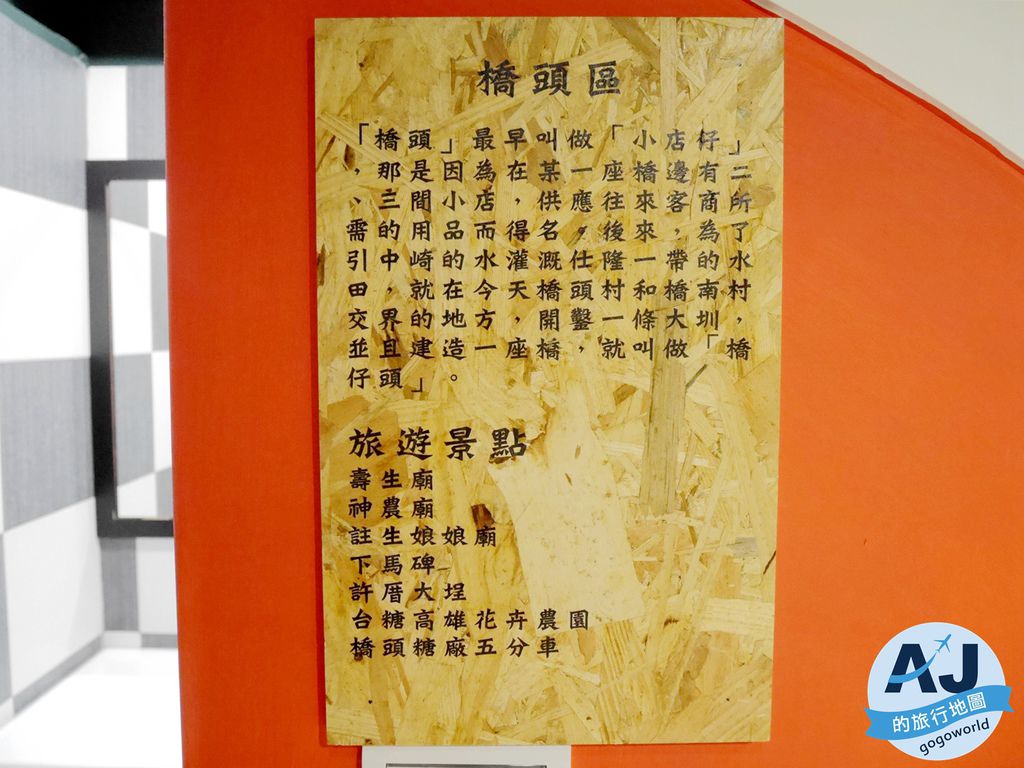 橋頭區
「橋頭」最早叫做「小店仔」
，那是因為在某一座橋邊有二
、三間小店，供應往來客商所
需的用品而得名。後來，為了
引中崎的水灌溉仕隆一帶的水
田，就在今天橋頭村和橋南村
交界的地方，開鑿一條大圳，
並且建造一座橋，就叫做「橋
仔頭」。
旅遊景點
壽生廟
神農廟
註生娘娘廟
下馬碑
許厝大埕
台糖高雄花卉農園
橋頭糖廠五分車
AJ
的旅行地圖
gogoworld